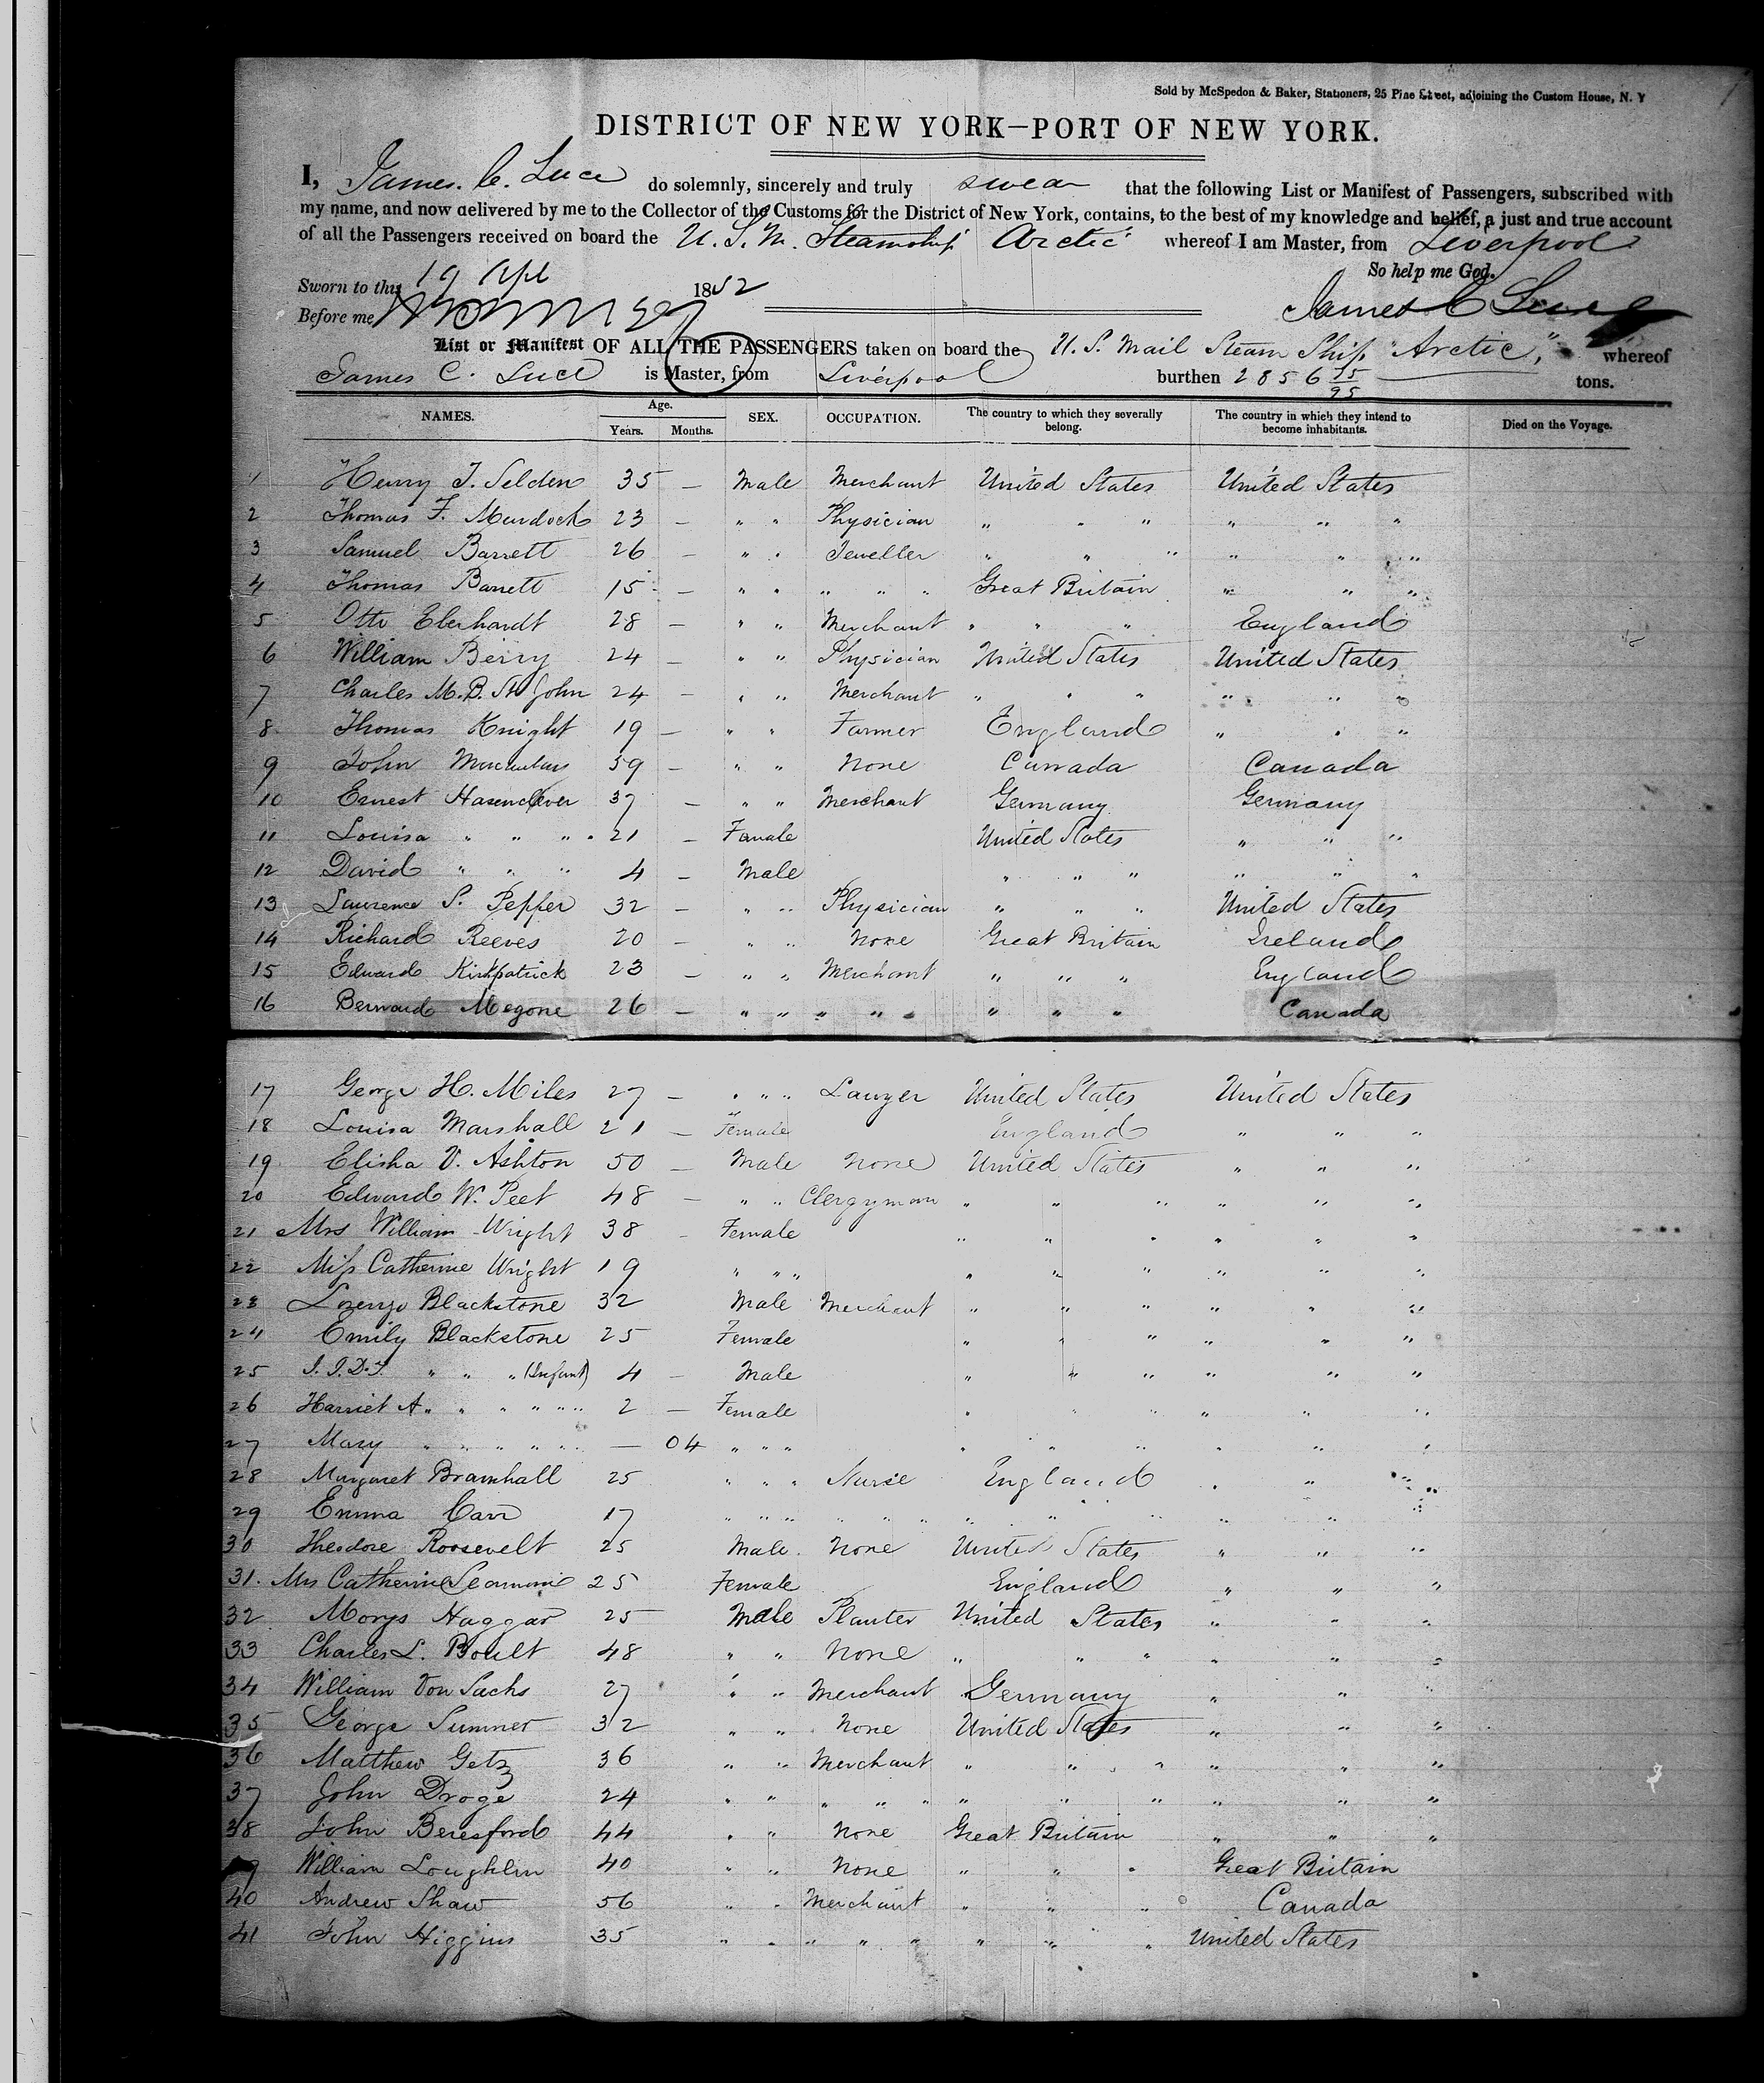 Sold by McSpedon & Baker, Stationers, 25 Pine Street, adjoining the Custom House, N. Y
DISTRICT OF NEW YORK—PORT OF NEW YORK.
I, James. C. Luce do solemnly, sincerely and truly swear that the following List or Manifest of Passengers, subscribed with
my name, and now delivered by me to the Collector of the Customs for the District of New York, contains, to the best of my knowledge and belief, a just and true account
of all the Passengers received on board the U. S. M. Steamship Arctic whereof I am Master, from Liverpool
So help me God.
Sworn to this 19 Apl 1852
Before me James C Luce
List or Manifest OF ALL THE PASSENGERS taken on board the U. S. Mail Steam Ship "Arctic," whereof
James C. Luce is Master, from Liverpool burthen 2856 75/95 tons.
NAMES. Age. Years. Months. SEX. OCCUPATION. The country to which they severally belong. The country in which they intend to become inhabitants. Died on the Voyage.
1 Henry J. Selden 35 — Male Merchant United States United States
2 Thomas F. Murdock 23 — " " Physician " " " " " "
3 Samuel Barrett 26 — " " Jeweller " " " " " "
4 Thomas Barrett 15 — " " " " " Great Britain " " "
5 Otto Eberhardt 28 — " " Merchant " " " England
6 William Berry 24 — " " Physician United States United States
7 Charles M. B. St John 24 — " " Merchant " " " " " "
8 Thomas Knight 19 — " " Farmer England " " "
9 John 59 — " " None Canada Canada
10 Ernest Hasenclever 37 — " " Merchant Germany Germany
11 Louisa " " " 21 — Female United States " " "
12 David " " " 4 — Male " " " " " "
13 Laurence S. Pepper 32 — " " Physician " " " United States
14 Richard Reeves 20 — " " None Great Britain Ireland
15 Edward Kirkpatrick 23 — " " Merchant " " " England
16 Bernard Megone 26 — " " " " " " " " Canada
17 George H. Miles 27 — " " " Lawyer United States United States
18 Louisa Marshall 21 — Female England " " "
19 Elisha V. Ashton 50 — Male None United States " " "
20 Edward W. Peet 48 — " " Clergyman " " " " " "
21 Mrs William Wright 38 - Female " " " " " "
22 Miss Catherine Wright 19 " " " " " " " " "
23 Lorenzo Blackstone 32 Male Merchant " " " " " "
24 Emily Blackstone 25 Female " " " " " "
25 " " " (Infant) 4 — Male " " " " " "
26 Harriet A. " " " " " 2 — Female " " " " " "
27 Mary " " " " " — 04 " " " " " " " " "
28 Margaret Bramhall 25 " " " Nurse England " " "
29 Emma Carr 17 " " " " " " " " " " " "
30 Theodore Roosevelt 25 Male None United States " " "
31. Mrs Catherine 25 Female England " " "
32 Morys Haggar 25 Male Planter United States " " "
33 Charles L. Boult 48 " " None " " " " " "
34 William Von Sachs 27 " " Merchant Germany " " "
35 George Sumner 32 " " None United States " " "
36 Matthew Getz 36 " " Merchant " " " " " "
37 John Droge 24 " " " " " " " " " " "
38 John Beresford 44 " " None Great Britain " " "
William Loughlin 40 " " None " " " Great Britain
40 Andrew Shaw 56 " " Merchant " " " Canada
41 John Higgins 35 " " " " " " " " United States